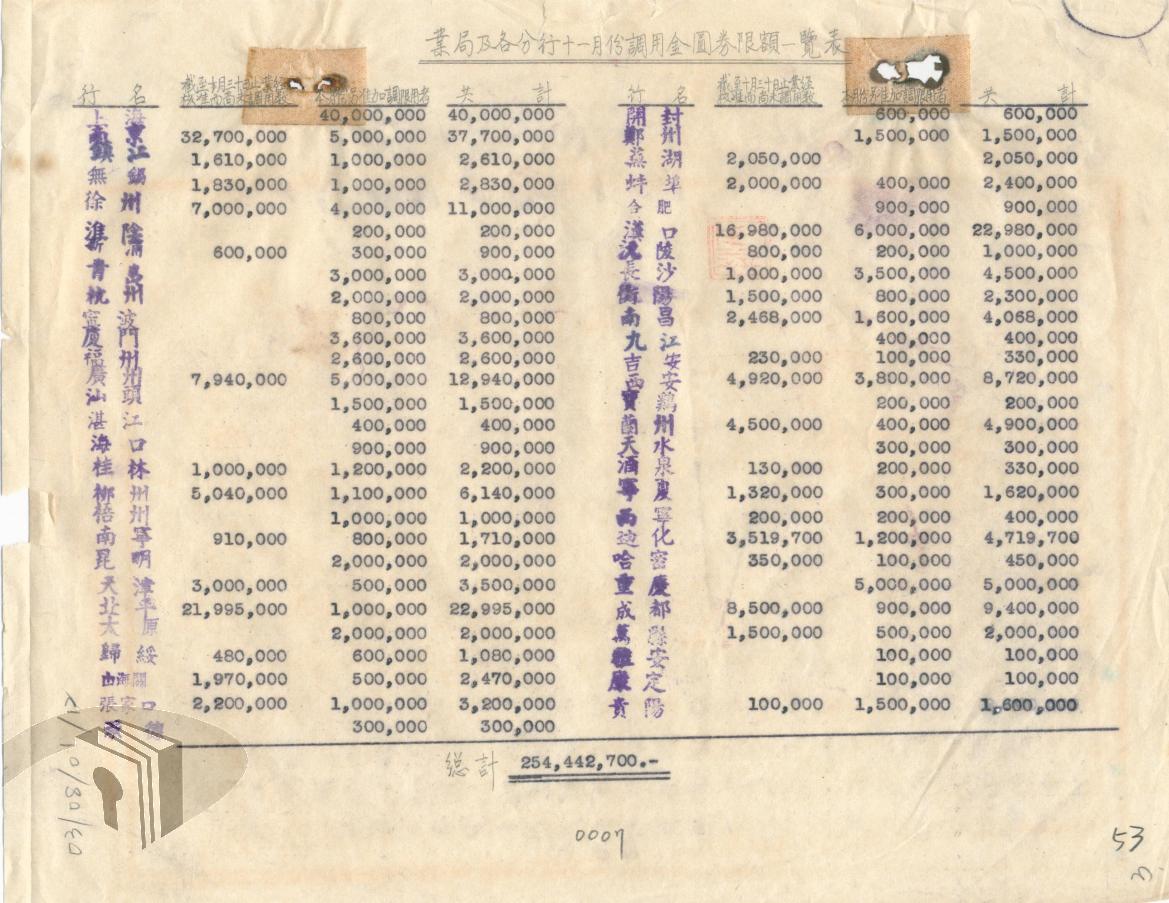 業局及各分行十一月份調用金圓券限額一覽表
行 名 截至十月三十日止業經核准而尚未調用數 本月份另准加調限用者 共 計
上海 40,000,000 40,000,000
南京 32,700,000 5,000,000 37,700,000
鎮江 1,610,000 1,000,000 2,610,000
無錫 1,830,000 1,000,000 2,830,000
徐州 7,000,000 4,000,000 11,000,000
淮陰 200,000 200,000
新浦 600,000 300,000 900,000
青島 3,000,000 3,000,000
杭州 2,000,000 2,000,000
寧波 800,000 800,000
廈門 3,600,000 3,600,000
福州 2,600,000 2,600,000
廣州 7,940,000 5,000,000 12,940,000
汕頭 1,500,000 1,500,000
湛江 400,000 400,000
海口 900,000 900,000
桂林 1,000,000 1,200,000 2,200,000
柳州 5,040,000 1,100,000 6,140,000
梧州 1,000,000 1,000,000
南寧 910,000 800,000 1,710,000
昆明 2,000,000 2,000,000
天津 3,000,000 500,000 3,500,000
北平 21,995,000 1,000,000 22,995,000
太原 2,000,000 2,000,000
歸綏 480,000 600,000 1,080,000
山海關 1,970,000 500,000 2,470,000
張家口 2,200,000 1,000,000 3,200,000
承德 300,000 300,000
行 名 截至十月三十日止業經核准而尚未調用數 本月份另准加調限用者 共 計
開封 600,000 600,000
鄭州 1,500,000 1,500,000
蕪湖 2,050,000 2,050,000
蚌埠 2,000,000 400,000 2,400,000
合肥 900,000 900,000
漢口 16,980,000 6,000,000 22,980,000
沅陵 800,000 200,000 1,000,000
長沙 1,000,000 3,500,000 4,500,000
衡陽 1,500,000 800,000 2,300,000
南昌 2,468,000 1,600,000 4,068,000
九江 400,000 400,000
吉安 230,000 100,000 330,000
西安 4,920,000 3,800,000 8,720,000
寶鷄 200,000 200,000
蘭州 4,500,000 400,000 4,900,000
天水 300,000 300,000
酒泉 130,000 200,000 330,000
寧夏 1,320,000 300,000 1,620,000
西寧 200,000 200,000 400,000
迪化 3,519,700 1,200,000 4,719,700
哈密 350,000 100,000 450,000
重慶 5,000,000 5,000,000
成都 8,500,000 900,000 9,400,000
萬縣 1,500,000 500,000 2,000,000
雅安 100,000 100,000
康定 100,000 100,000
貴陽 100,000 1,500,000 1,600,000
總計 254,442,700.-
0007
53